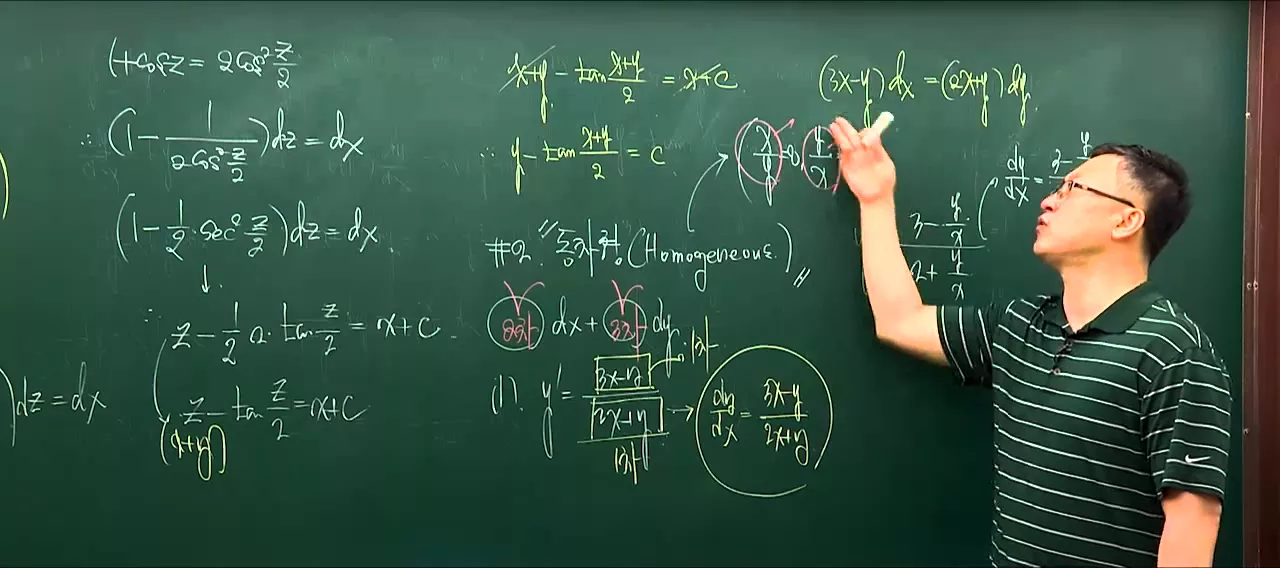 1+cosz = 2cos² z/2
∴ (1 - 1/(2cos² z/2))dz = dx
(1 - 1/2 · sec² z/2)dz = dx.
↓
∴ z - 1/2 · 2 · tan z/2 = x+c
z - tan z/2 = x+c
(x+y)
)dz = dx
x+y - tan (x+y)/2 = x+c.
∴ y - tan (x+y)/2 = c
#2. "동차형" (Homogeneous.)
2차 dx + 3차 dy
(1). y' = (3x-y)/(2x+y) → dy/dx = (3x-y)/(2x+y)
1차
1차
(3x-y)dx = (2x+y)dy.
(x/y or y/x
(3 - y/x)/(2 + y/x)
dy/dx = 3 - y